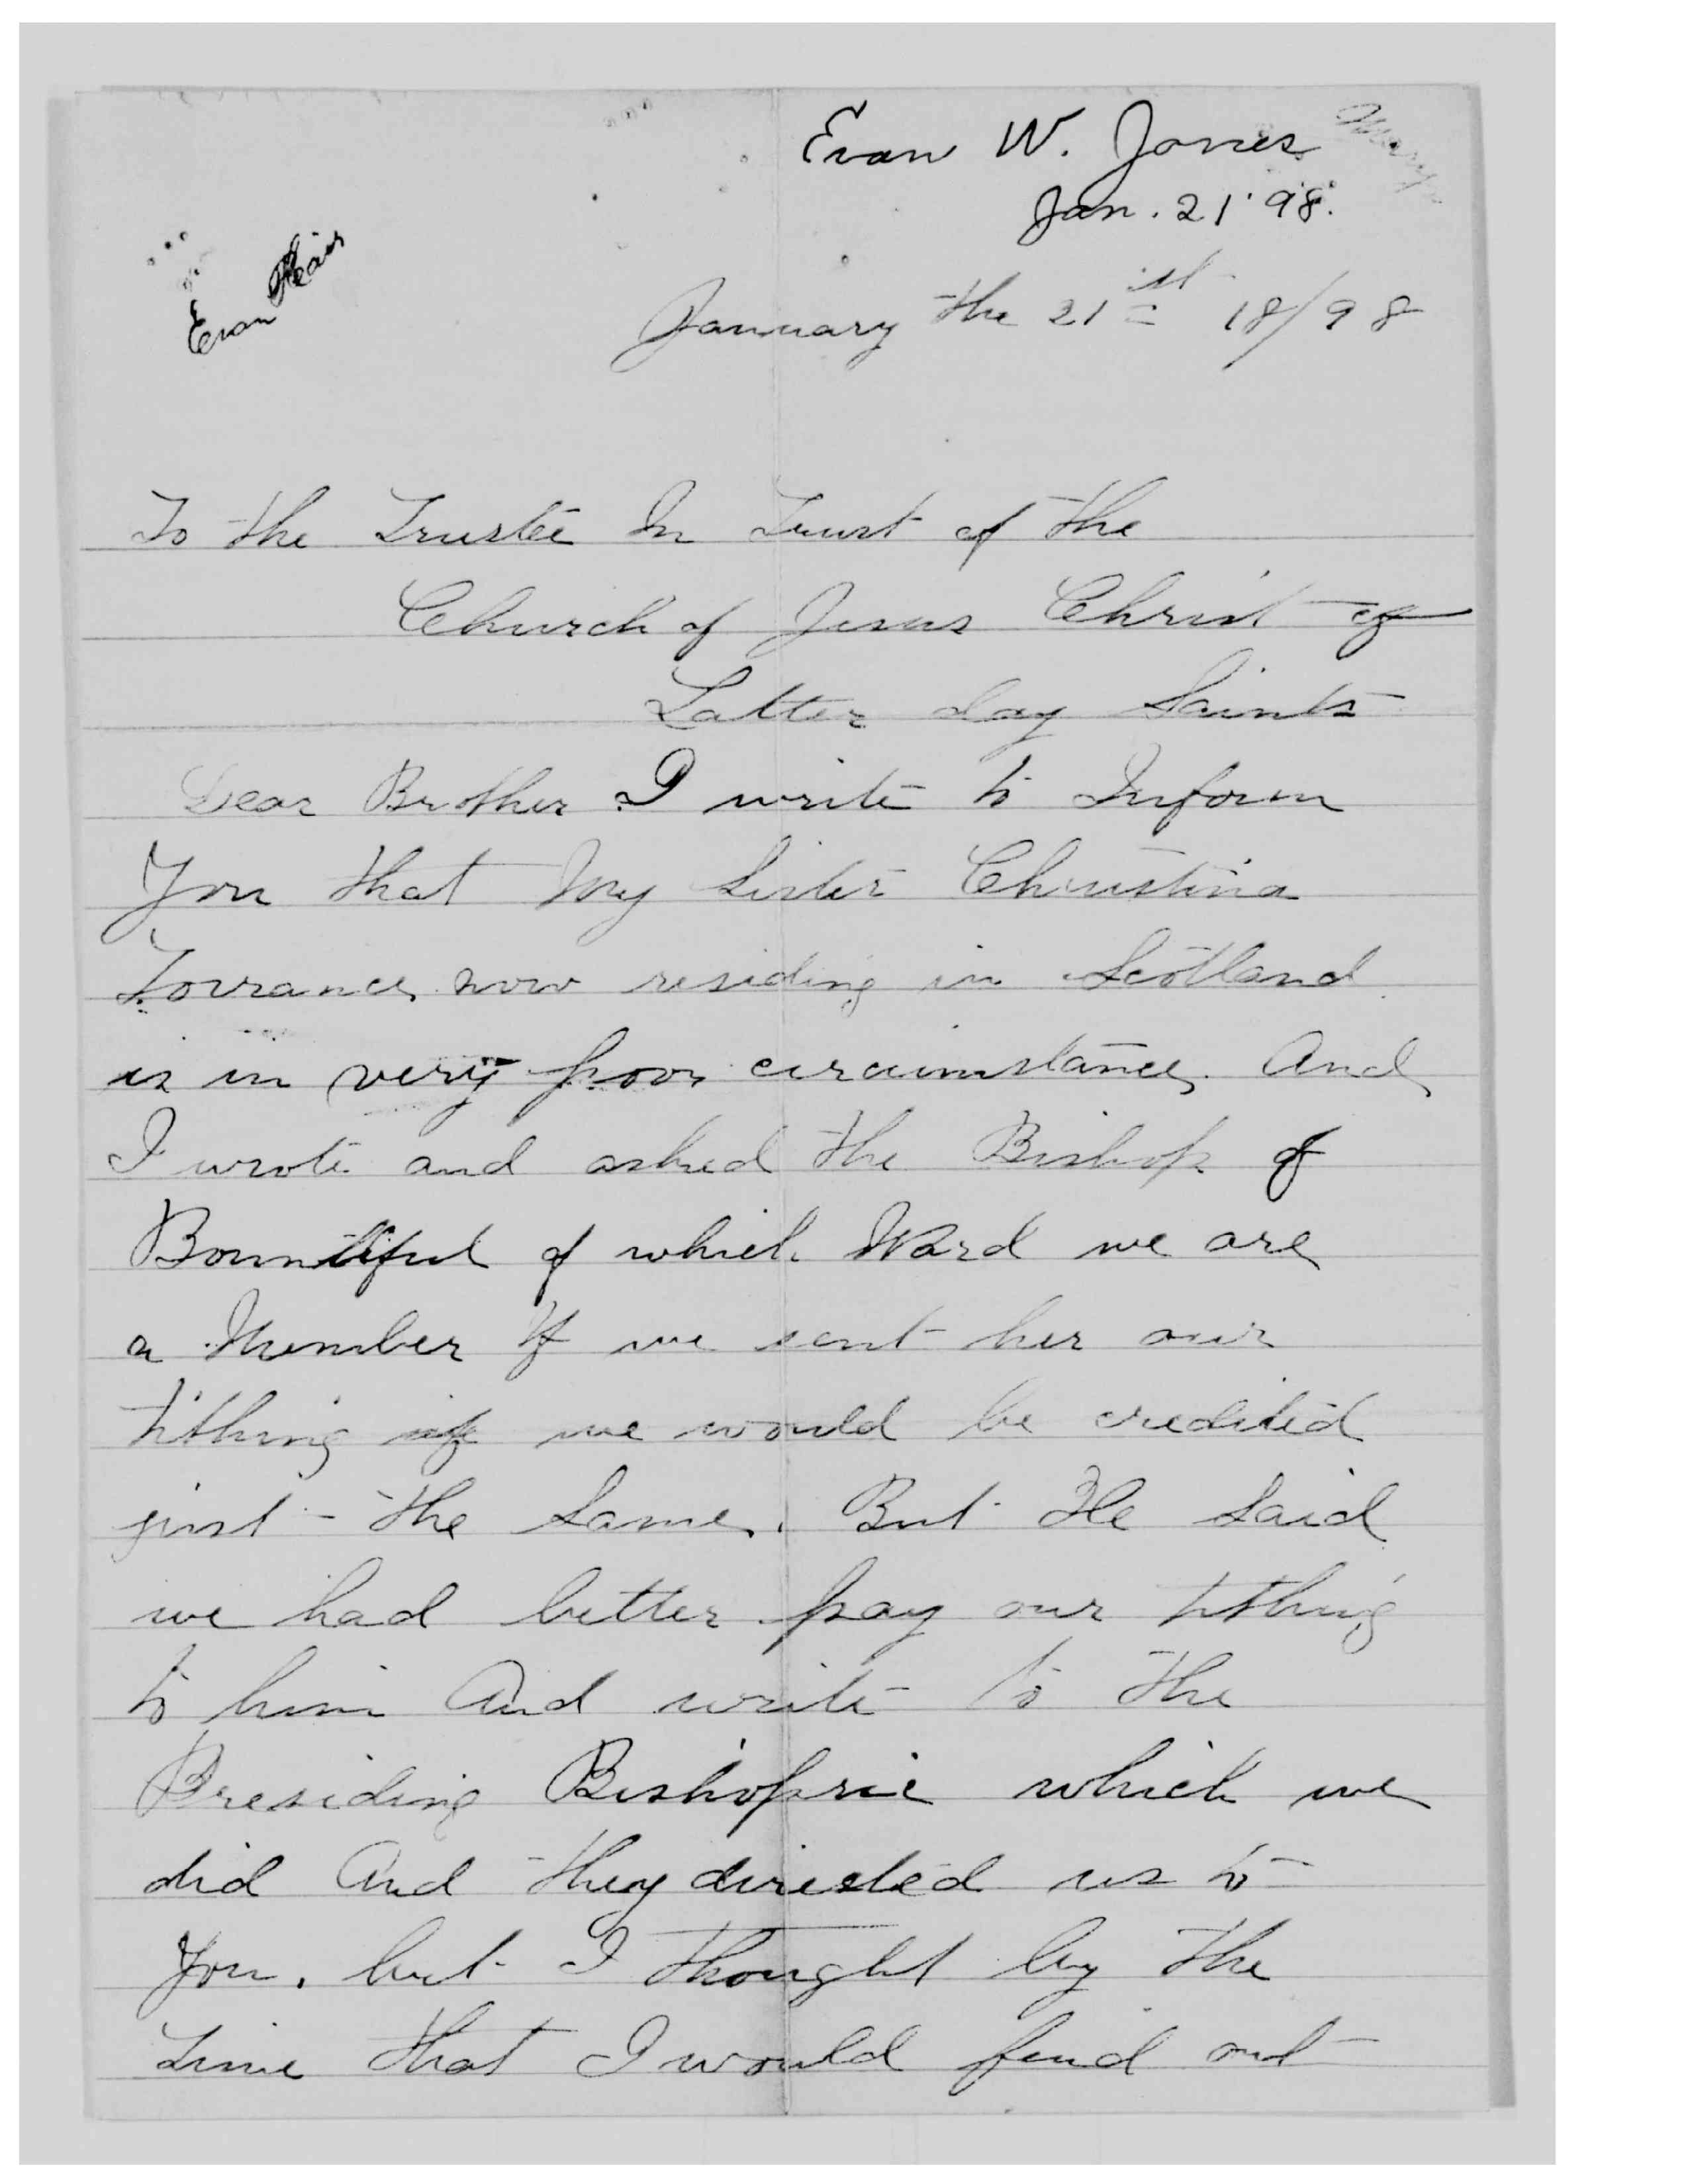 Evan W. Jones
Jan. 21 '98.
Evan
January the 21st 18/98
To the Trustee In Trust of the
Church of Jesus Christ of
Latter day Saints
Dear Brother I write to Inform
You that My Sister Christina
Torrance now residing in Scotland
is in very poor circumstances And
I wrote and asked the Bishop of
Bountiful of which Ward we are
a Member If we sent her our
tithing if we would be credited
just the Same. But He Said
we had better pay our tithing
to him And write to the
Presiding Bishopric which we
did And they directed us to
You. but I thought by the
time that I would find out